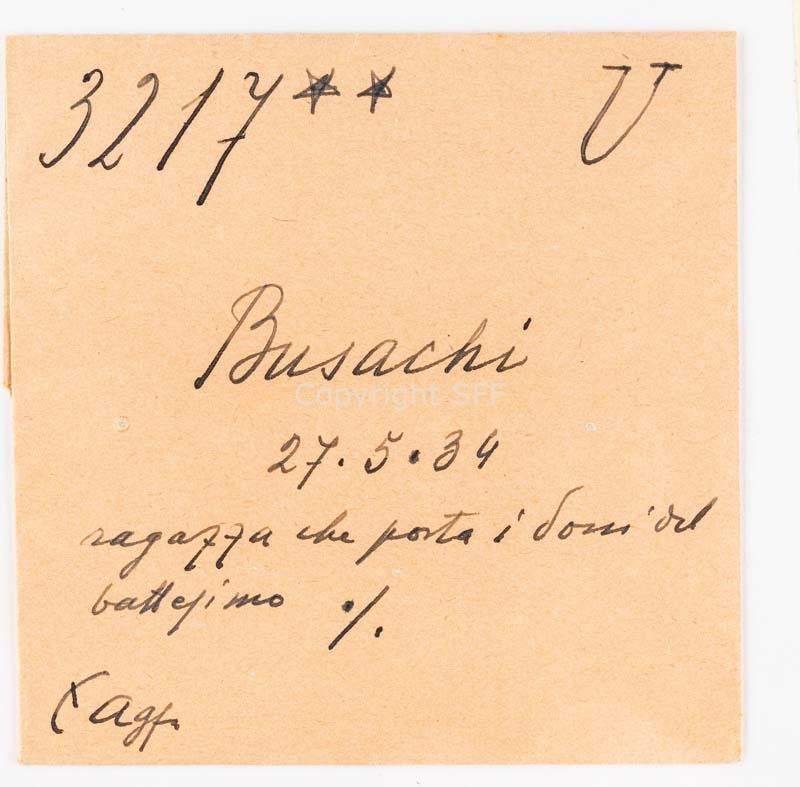 3217** U
Busachi
Copyright SFF
27.5.34
ragazza che porta i doni del
battesimo ./.
Agf